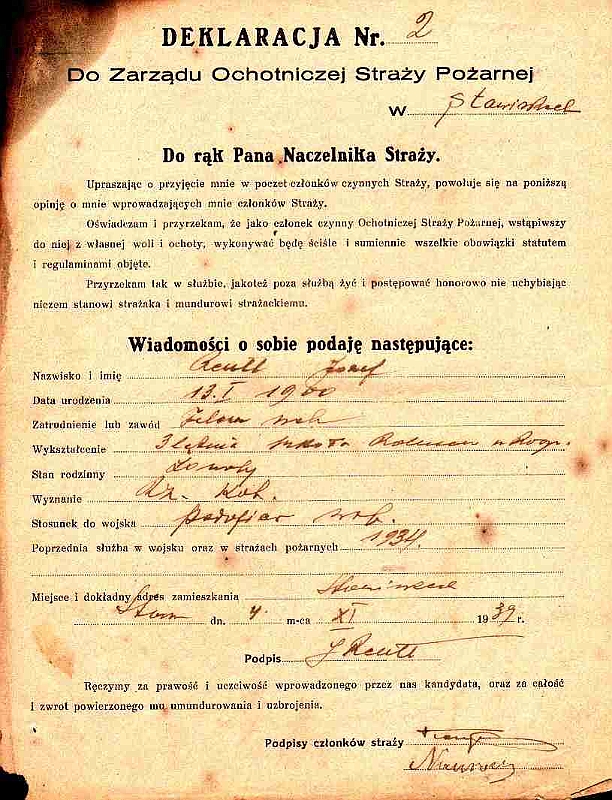 DEKLARACJA Nr. 2
Do Zarządu Ochotniczej Straży Pożarnej
w
Do rąk Pana Naczelnika Straży.
Upraszając o przyjęcie mnie w poczet członków czynnych Straży, powołuje się na poniższą
opinję o mnie wprowadzających mnie członków Straży.
Oświadczam i przyrzekam, że jako członek czynny Ochotniczej Straży Pożarnej, wstąpiwszy
do niej z własnej woli i ochoty, wykonywać będę ściśle i sumiennie wszelkie obowiązki statutem
i regulaminami objęte.
Przyrzekam tak w służbie, jakoteż poza służbą żyć i postępować honorowo nie uchybiając
niczem stanowi strażaka i mundurowi strażackiemu.
Wiadomości o sobie podaję następujące:
Nazwisko i imię Reutt Józef
Data urodzenia 13. I 1900
Zatrudnienie lub zawód
Wykształcenie szkoła
Stan rodzinny żonaty
Wyznanie Rz. Kat.
Stosunek do wojska podoficer
Poprzednia służba w wojsku oraz w strażach pożarnych 1934.
Miejsce i dokładny adres zamieszkania
dn. 4. m-ca XI 1939 r.
Podpis J Reutt
Ręczymy za prawość i uczciwość wprowadzonego przez nas kandydata, oraz za całość
i zwrot powierzonego mu umundurowania i uzbrojenia.
Podpisy członków straży